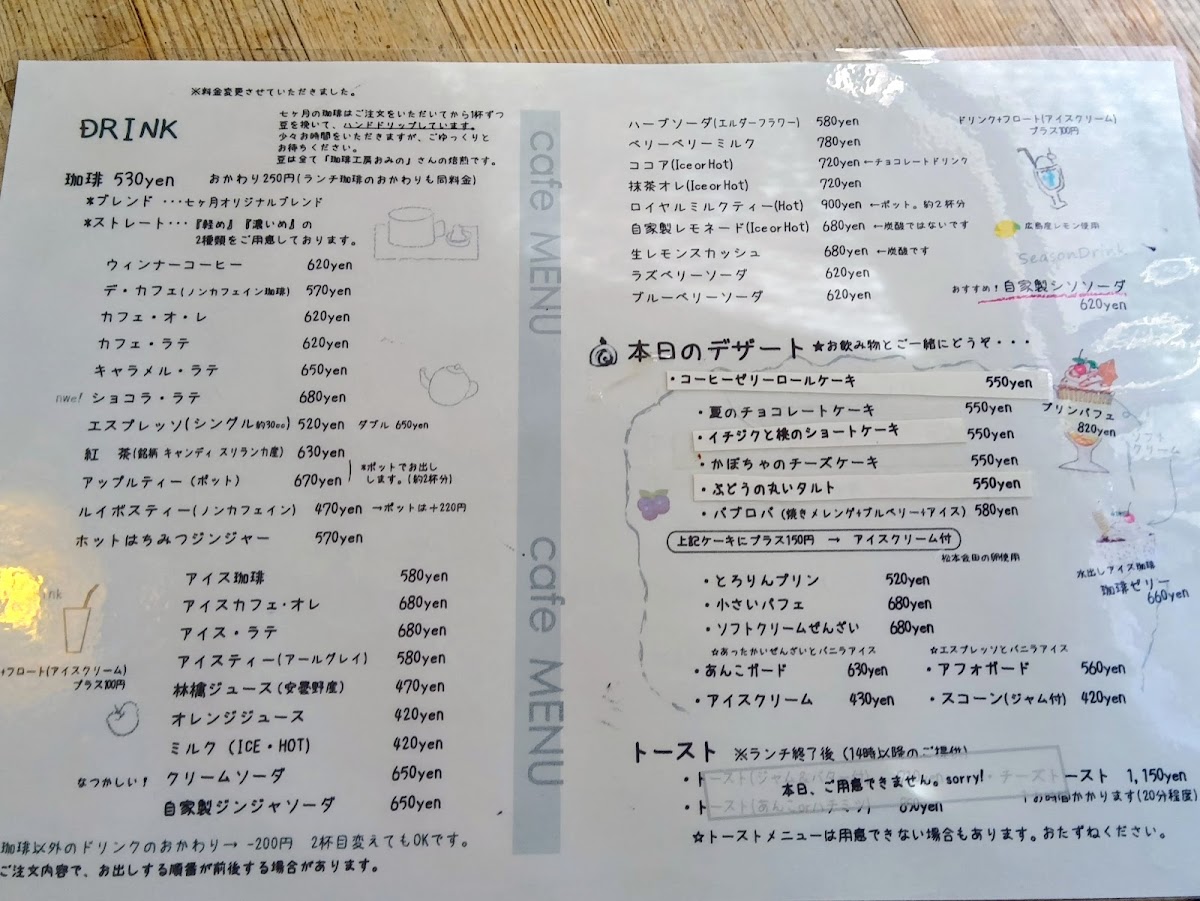 ※料金変更させていただきました。
DRINK
七ヶ月の珈琲はご注文をいただいてから1杯ずつ
豆を挽いて、ハンドドリップしています。
少々お時間をいただきますが、ごゆっくりと
お待ちください。
豆は全て「珈琲工房おみの」さんの焙煎です。
珈琲 530yen おかわり250円(ランチ珈琲のおかわりも同料金)
*ブレンド ・・・七ヶ月オリジナルブレンド
*ストレート・・・『軽め』『濃いめ』の
2種類をご用意しております。
ウィンナーコーヒー 620yen
デ・カフェ(ノンカフェイン珈琲) 570yen
カフェ・オ・レ 620yen
カフェ・ラテ 620yen
キャラメル・ラテ 650yen
nwe! ショコラ・ラテ 680yen
エスプレッソ(シングル約30cc) 520yen ダブル 650yen
紅 茶(銘柄 キャンディ スリランカ産) 630yen
アップルティー(ポット) 670yen
*ポットでお出し
します。(約2杯分)
ルイボスティー(ノンカフェイン) 470yen →ポットは+220円
ホットはちみつジンジャー 570yen
アイス珈琲 580yen
アイスカフェ・オレ 680yen
アイス・ラテ 680yen
アイスティー(アールグレイ) 580yen
+フロート(アイスクリーム)
プラス100円
林檎ジュース(安曇野産) 470yen
オレンジジュース 420yen
ミルク (ICE・HOT) 420yen
なつかしい! クリームソーダ 650yen
自家製ジンジャソーダ 650yen
珈琲以外のドリンクのおかわり→ -200円 2杯目変えてもOKです。
ご注文内容で、お出しする順番が前後する場合があります。
cafe MENU
cafe MENU
ハーブソーダ(エルダーフラワー) 580yen
ベリーベリーミルク 780yen
ココア(Ice or Hot) 720yen ←チョコレートドリンク
抹茶オレ(Ice or Hot) 720yen
ロイヤルミルクティー(Hot) 900yen ←ポット。約2杯分
自家製レモネード(Ice or Hot) 680yen ←炭酸ではないです
生レモンスカッシュ 680yen ←炭酸です
ラズベリーソーダ 620yen
ブルーベリーソーダ 620yen
ドリンク+フロート(アイスクリーム)
プラス100円
広島産レモン使用
SeasonDrink
おすすめ! 自家製シソソーダ
620yen
本日のデザート ☆お飲み物とご一緒にどうぞ・・・
・コーヒーゼリーロールケーキ 550yen
・夏のチョコレートケーキ 550yen
・イチジクと桃のショートケーキ 550yen
・かぼちゃのチーズケーキ 550yen
・ぶどうの丸いタルト 550yen
・パブロバ (焼きメレンゲ+ブルベリー+アイス) 580yen
上記ケーキにプラス150円 → アイスクリーム付
松本会田の卵使用
・とろりんプリン 520yen
・小さいパフェ 680yen
・ソフトクリームぜんざい 680yen
☆あったかいぜんざいとバニラアイス
・あんこガード 630yen
☆エスプレッソとバニラアイス
・アフォガード 560yen
・アイスクリーム 430yen
・スコーン(ジャム付) 420yen
プリンパフェ
820yen
ソフト
クリーム
水出しアイス珈琲
珈琲ゼリー
660yen
トースト ※ランチ終了後(14時以降のご提供)
本日、ご用意できません。sorry!
・チーズトースト 1,150yen
↑お時間かかります(20分程度)
☆トーストメニューは用意できない場合もあります。おたずねください。